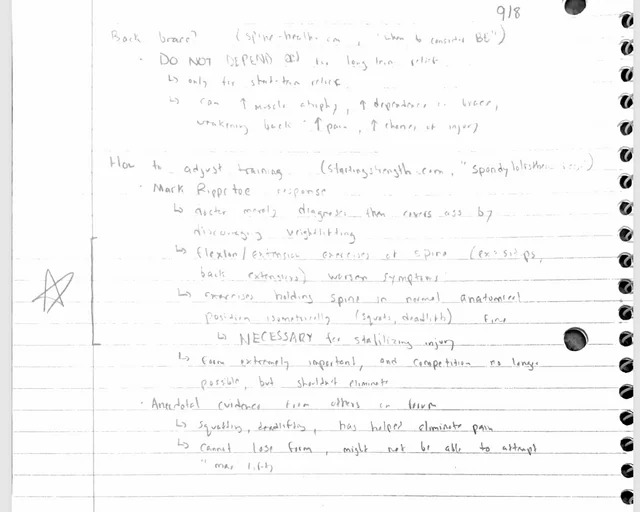 9/8
Back brace? (spine-health.com, "when to consider BE")
· DO NOT DEPEND for long term relief
↳ only for short-term relief
↳ can ↑ muscle atrophy, ↑ dependence on brace,
weakening back ↑ pain, ↑ chance of injury
How to adjust training (startingstrength.com, "Spondylolisthesis
· Mark Rippetoe response
↳ doctor merely diagnoses then covers ass by
discouraging weightlifting
↳ flexion/extension exercises of spine (ex> situps,
back extensions) worsen symptoms
↳ exercises holding spine in normal anatomical
position isometrically (squats, deadlifts) fine
↳ NECESSARY for stabilizing injury
↳ form extremely important, and competition no longer
possible, but shouldn't eliminate
· Anecdotal evidence from others in forum
↳ squatting, deadlifting, has helped eliminate pain
↳ cannot lose form, might not be able to attempt
"max lifts